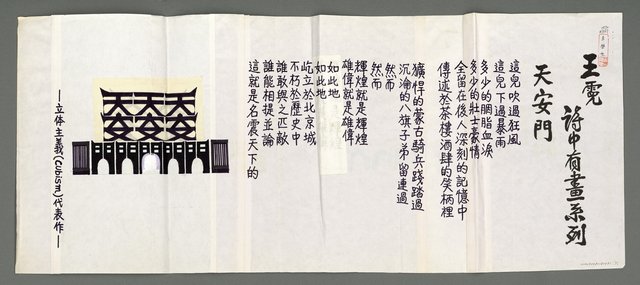 王霓 詩中有畫系列
天安門
這兒吹過狂風
這兒下過暴雨
多少的胭脂血淚
多少的壯士豪情
全留在後人深刻的記憶中
傳述於茶樓酒肆的笑柄裡
獷悍的蒙古騎兵踐踏過
沉淪的八旗子弟留連過
然而
然而
輝煌就是輝煌
雄偉就是雄偉
如此地
如此地
屹立於北京城
不朽於歷史中
誰敢與之匹敵
誰能相提並論
這就是名震天下的
天天天
安安安
門門門門
—立体主義(Cubism)代表作—